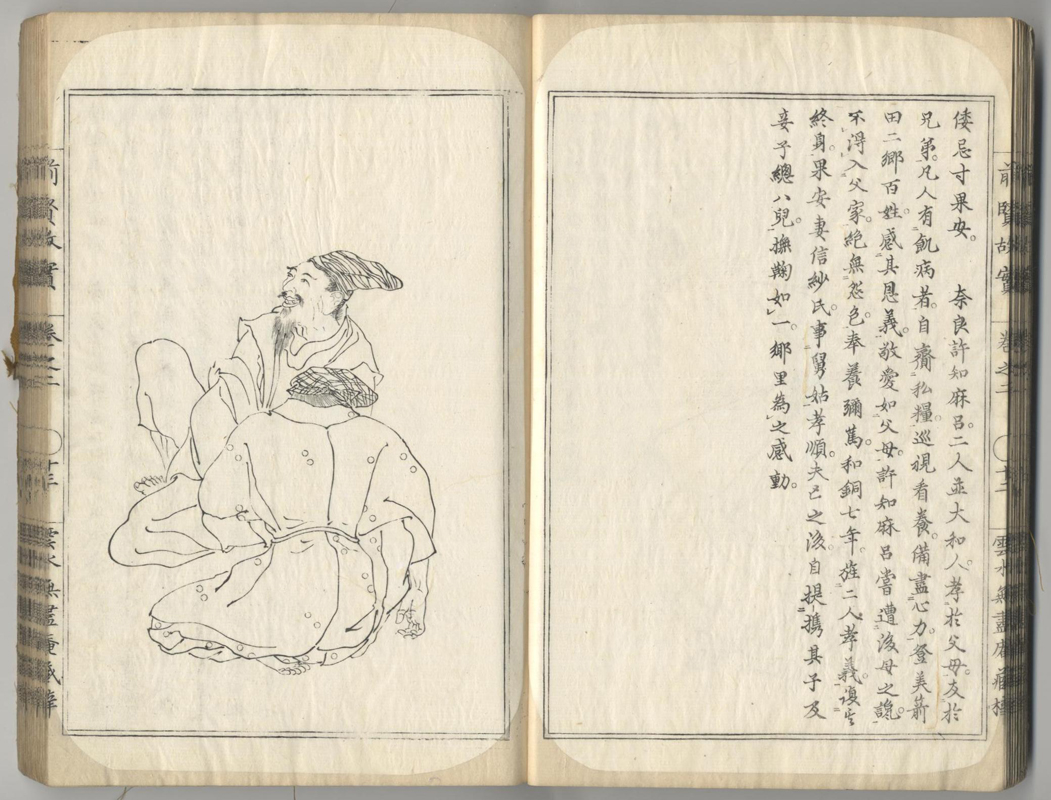 倭忌寸果安。　奈良許知麻呂。二人並大和人。孝於父母。友於
兄弟。凡人有飢病者。自齎私糧。巡視看養。備盡心力。登美箭
田二鄉百姓。感其恩義。敬愛如父母。許知麻呂嘗遭後母之讒。
不得入父家。絕無怨色。奉養彌篤。和銅七年。旌二人孝義。復
終身。果安妻信紗氏。事舅姑孝順。夫亡之後。自提攜其子及
妾子總八兒。撫鞠如一。鄉里為之感動。
前賢故實　卷之二　十二　雲水無盡庵藏
前賢故實　卷之二　十三　雲水無盡庵藏